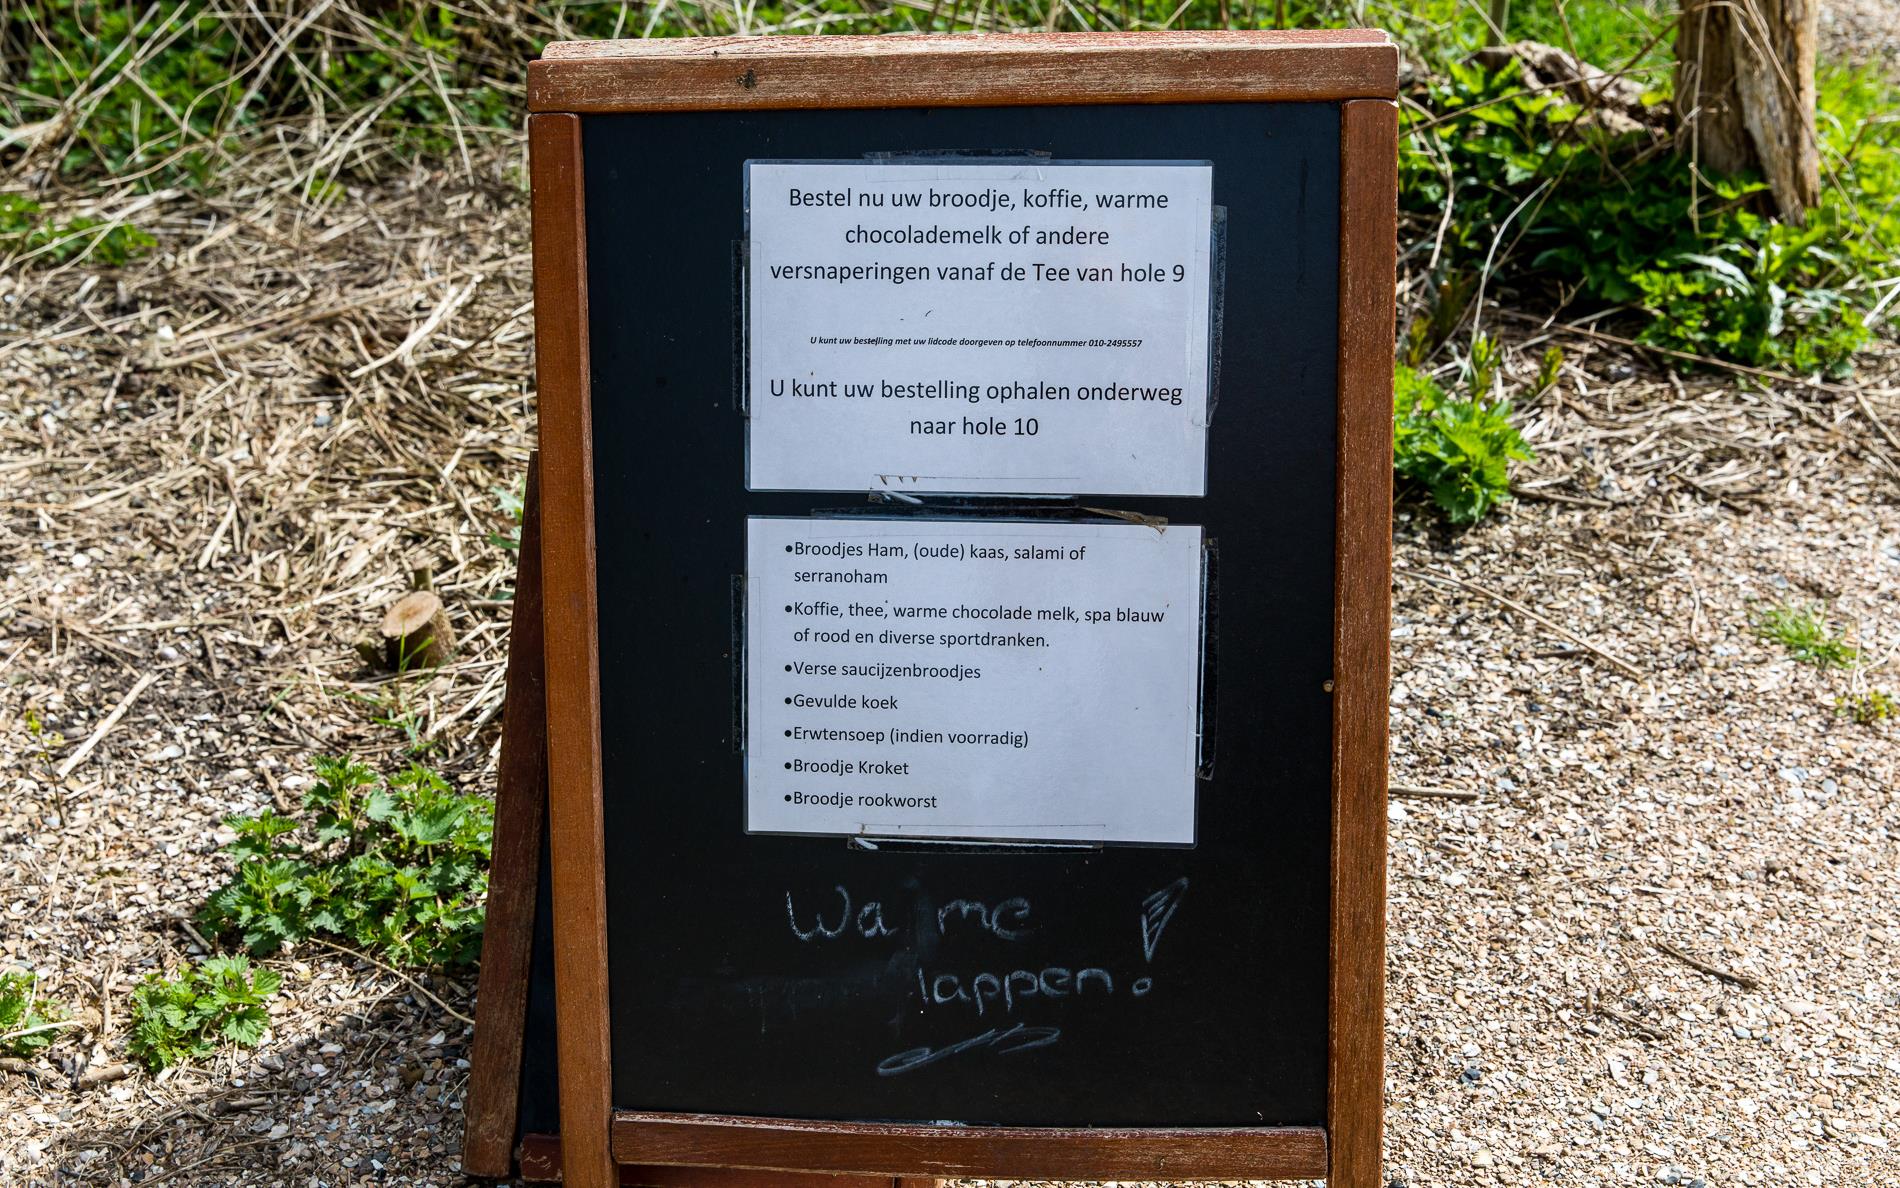 Bestel nu uw broodje, koffie, warme
chocolademelk of andere
versnaperingen vanaf de Tee van hole 9
U kunt uw bestelling met uw lidcode doorgeven op telefoonnummer 010-2495557
U kunt uw bestelling ophalen onderweg
naar hole 10
•Broodjes Ham, (oude) kaas, salami of
serranoham
•Koffie, thee, warme chocolade melk, spa blauw
of rood en diverse sportdranken.
•Verse saucijzenbroodjes
•Gevulde koek
•Erwtensoep (indien voorradig)
•Broodje Kroket
•Broodje rookworst
Wa me
lappen!